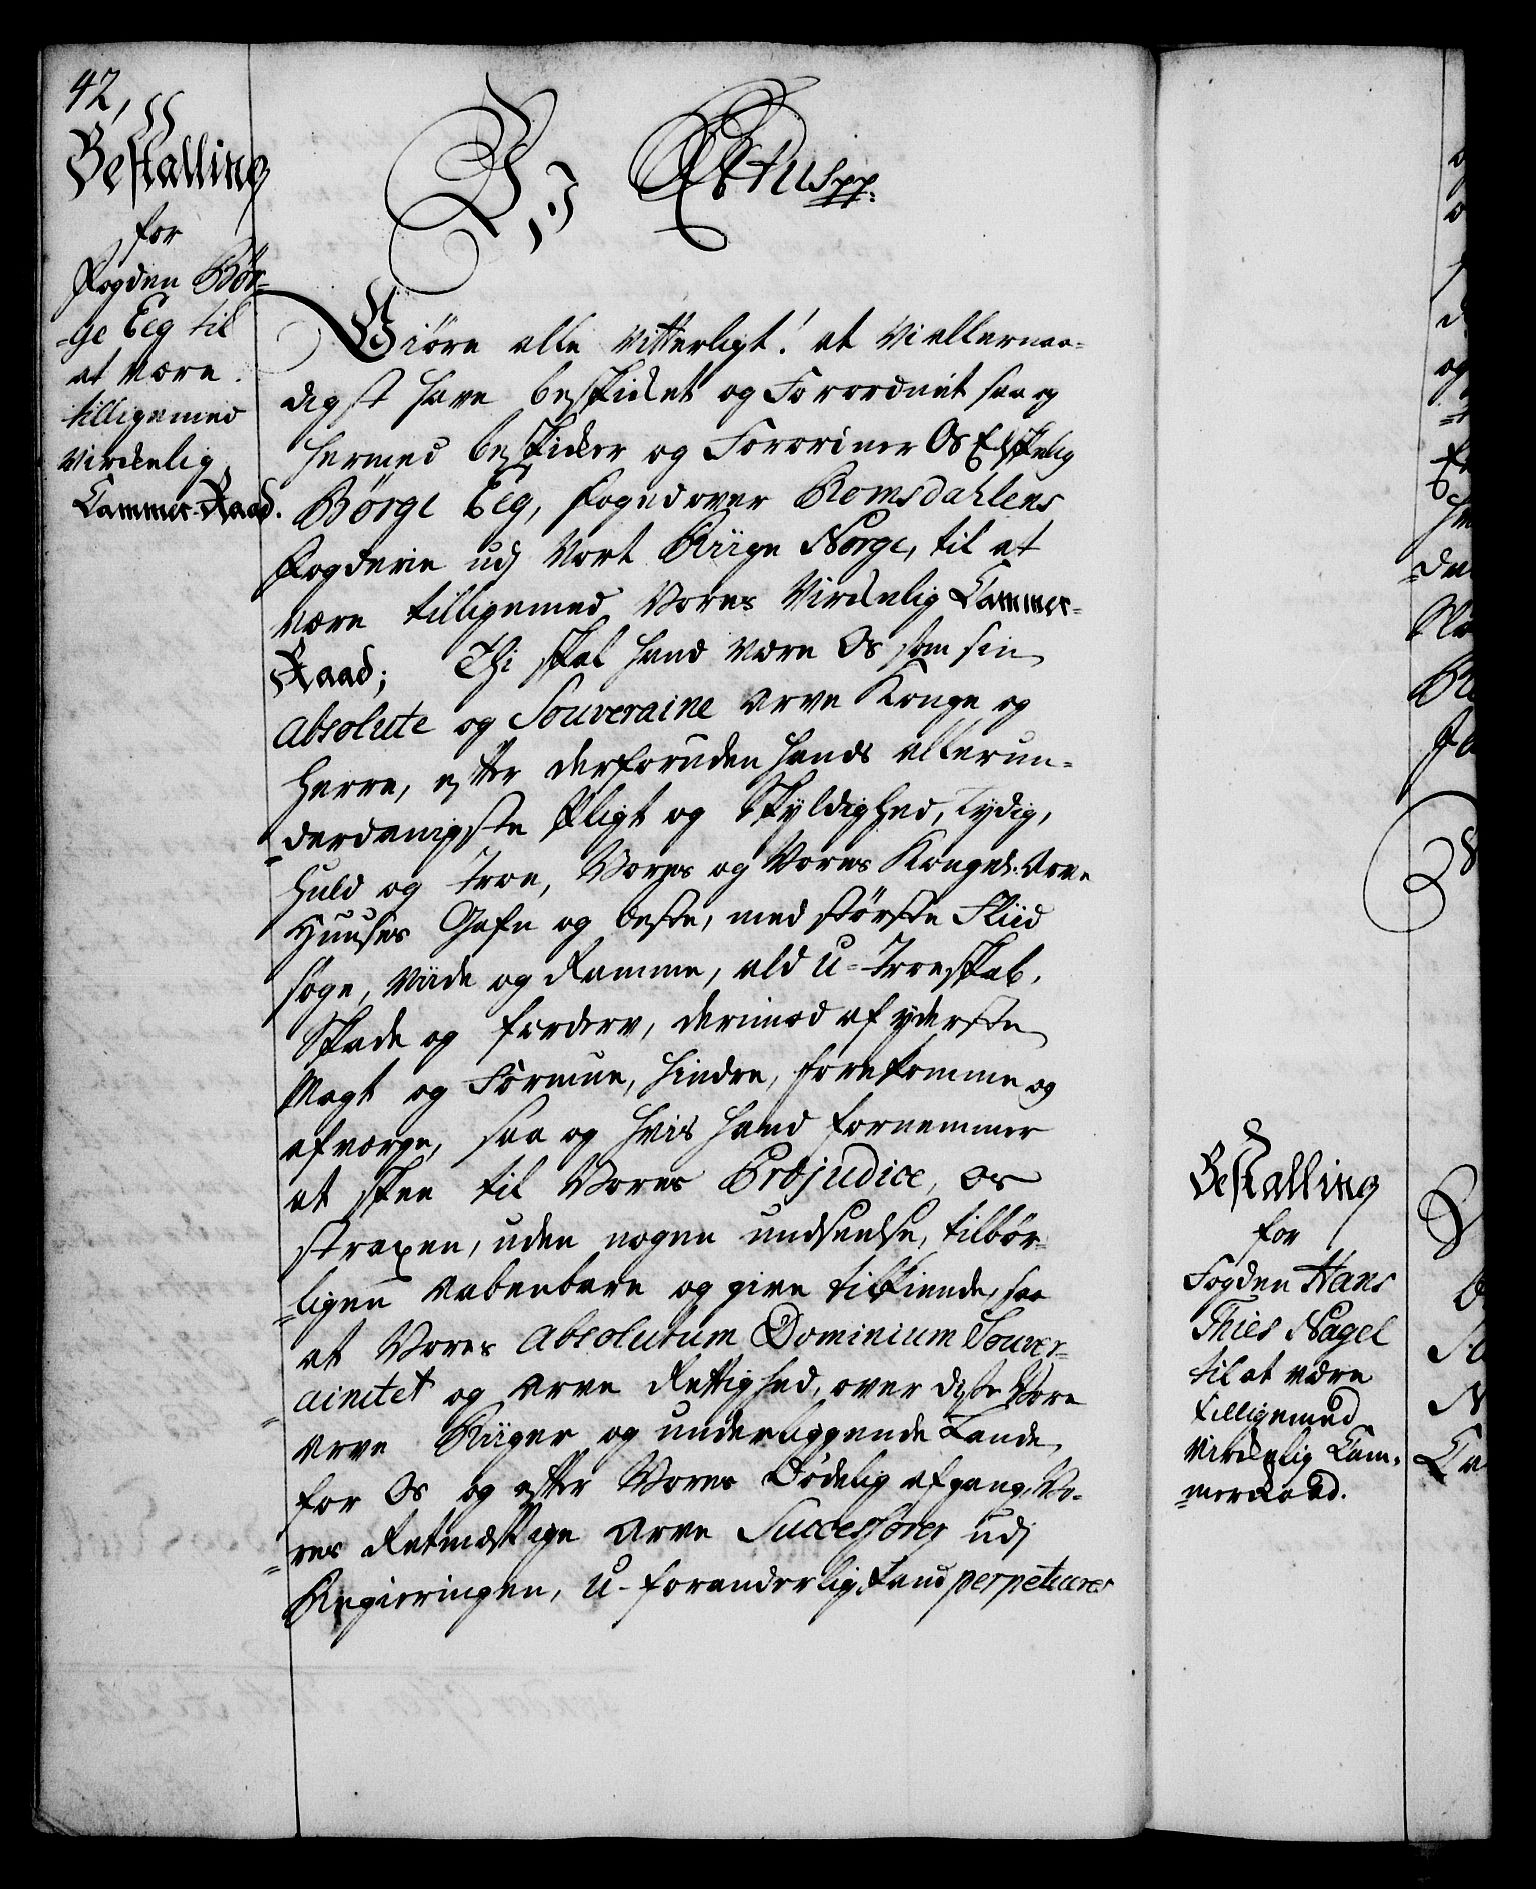 42,
Bestalling
for
Fogden Bør-
-ge Eeg til
at være
tilligemed
Virkelig
Cammer-Raad.
Giøre alle Vitterligt! at Vi allernaa-
digst have beskicket og Forordnet saa og
hermed beskicker og Forordner Os Elskelig
Børge Eeg, Foged over Romsdahlens
Fogderie udj Vort Riige Norge, til at
være tilligemed Vores Virkelig Cammer-
Raad; Thi skal hand være Os som sin
absolute og Souveraine Arve Konge og
Herre, efter derforuden hands allerun-
-derdanigste Pligt og Skyldighed, Lydig,
huld og Troe, Vores og Vores Kongel. Arve
Huuses Gafn og beste, med største Fliid
søge, Viide og Ramme, ald U-Troeskab,
Skade og fordærv, derimod af yderste
Magt og Formue, hindre, forekomme og
afværge, saa og hvis hand fornemmer
at skee til Vores Præjudice, Os
straxen, uden nogen undseelse, tilbør-
-ligen aabenbare og give tilkiende, saa
at Vores absolutum Dominium Souver-
ainitet og Arve Rettighed, over disse Vore
-Arve Riiger og underliggende Lande,
for Os og efter Vores Dødelig afgang, Vo-
res Retmæssige Arve Successorer udj
-Regieringen, U-foranderlig kand perpetueres
Bestalling
for
Fogden Hans
Thies Nagel
til at være
tilligemed
Virkelig Cam-
-merRaad.